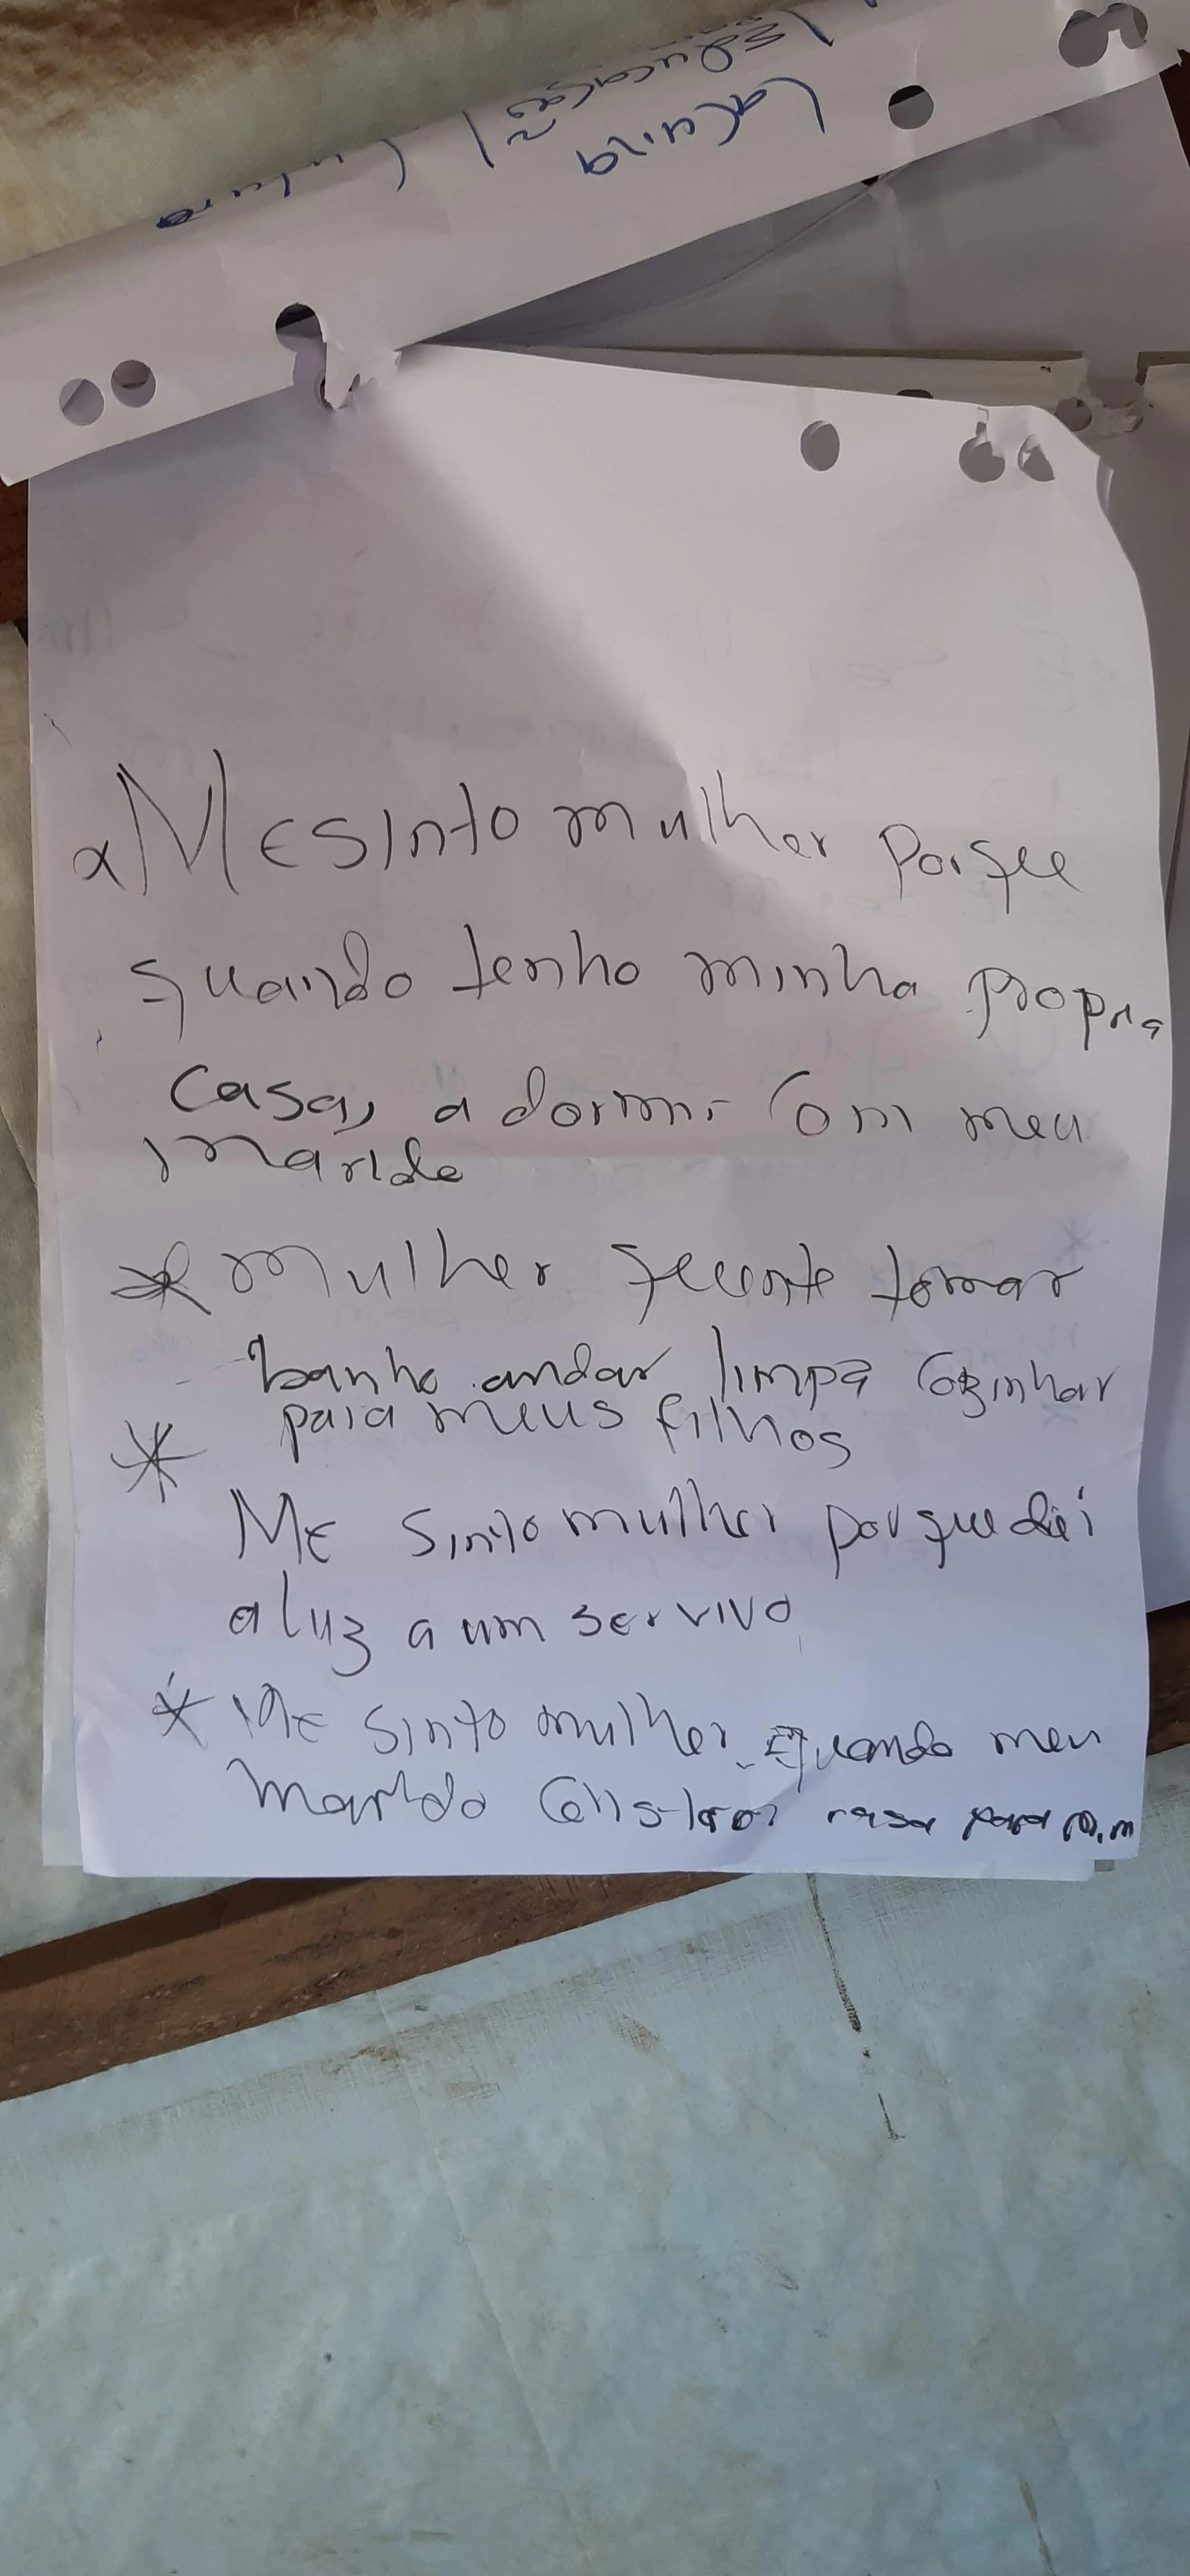 Educação
Latrina
* Me sinto mulher Porque
quando tenho minha propria
Casa, a dormir Com meu
marido
* mulher tomar
banho andar limpa Cozinhar
para meus filhos
* Me sinto mulher porque dei
a luz a um ser vivo
* Me sinto mulher quando meu
marido casa para mim